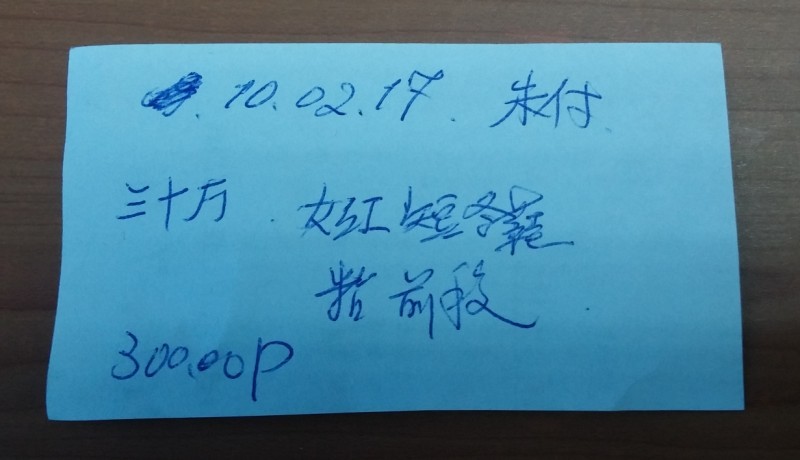 10.02.17. 朱付
三十万. 女红短客鞋
前段.
300.00P